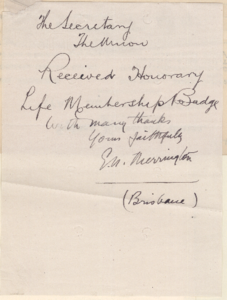 The Secretary
The Union
Received Honorary
Life Membership & Badge
with many thanks
Yours faithfully
E. N. Merrington
(Brisbane)